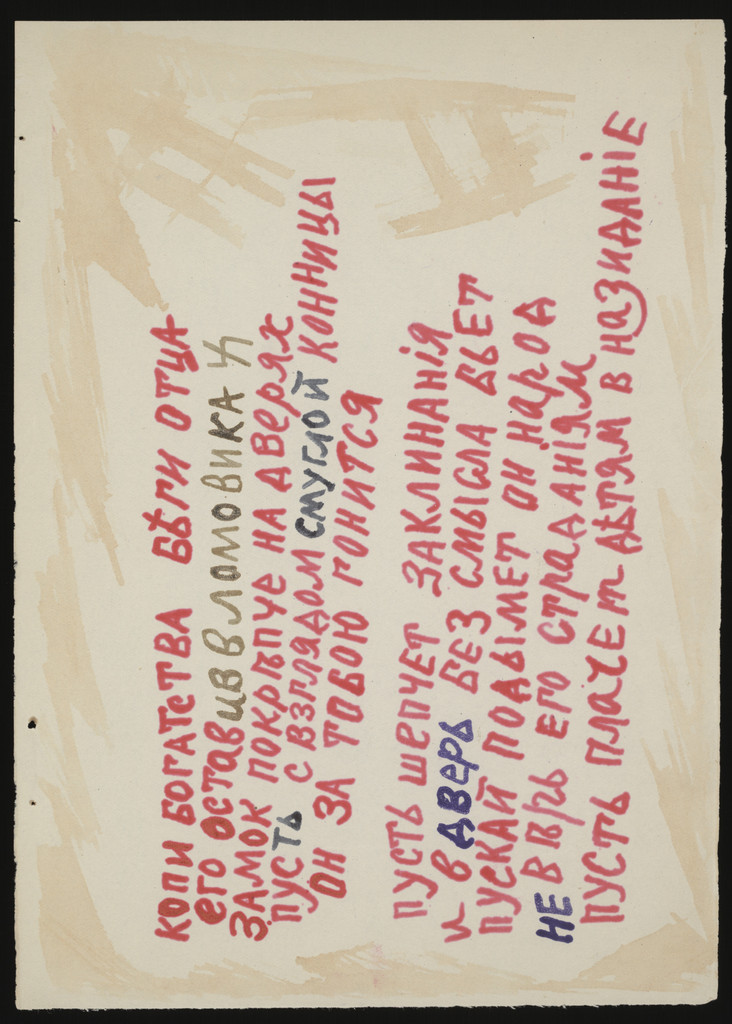 КОПИ БОГАТСТВА БѢГИ ОТЦА
ЕГО ОСТАВИВ ВЛОМОВИКА Ч
ЗАМОК ПОКРѢПЧЕ НА ДВЕРЯХ
ПУСТЬ С ВЗГЛЯДОМ СМУГЛОЙ КОННИЦЫ
ОН ЗА ТОБОЮ ГОНИТСЯ
ПУСТЬ ШЕПЧЕТ ЗАКЛИНАНІЯ
И В ДВЕРЬ БЕЗ СМЫСЛА БЬЕТ
ПУСКАЙ ПОДЫМЕТ ОН НАРОД
НЕ ВѢРЬ ЕГО СТРАДАНІЯМ
ПУСТЬ ПЛАЧЕТ ДѢТЯМ В НАЗИДАНІЕ